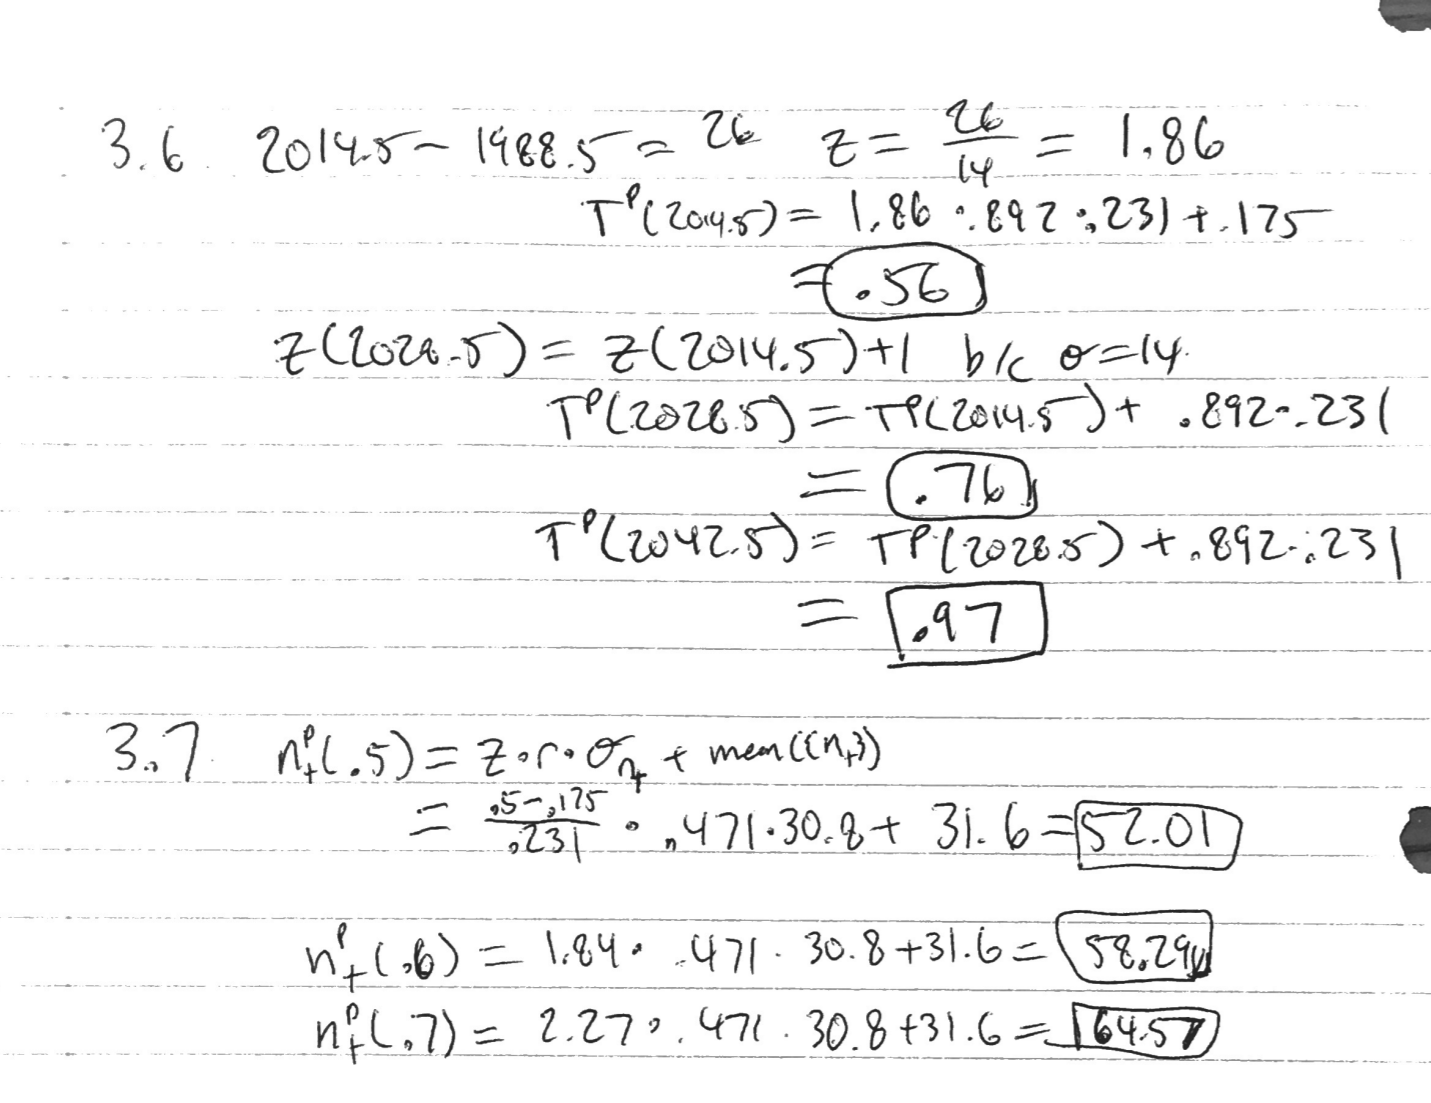 3.6. 2014.5 - 1988.5 = 26 z = 26/14 = 1.86
T^P(2014.5) = 1.86 · .892 · .231 + .175
= .56
z(2028.5) = z(2014.5) + 1 b/c σ = 14.
T^P(2028.5) = T^P(2014.5) + .892 · .231
= .76
T^P(2042.5) = T^P(2028.5) + .892 · .231
= .97
3.7. n_t^P(.5) = z · r · σ_{n_t} + mean({n_t})
= (.5 - .175)/.231 · .471 · 30.8 + 31.6 = 52.01
n_t^P(.6) = 1.84 · .471 · 30.8 + 31.6 = 58.29
n_t^P(.7) = 2.27 · .471 · 30.8 + 31.6 = 64.57